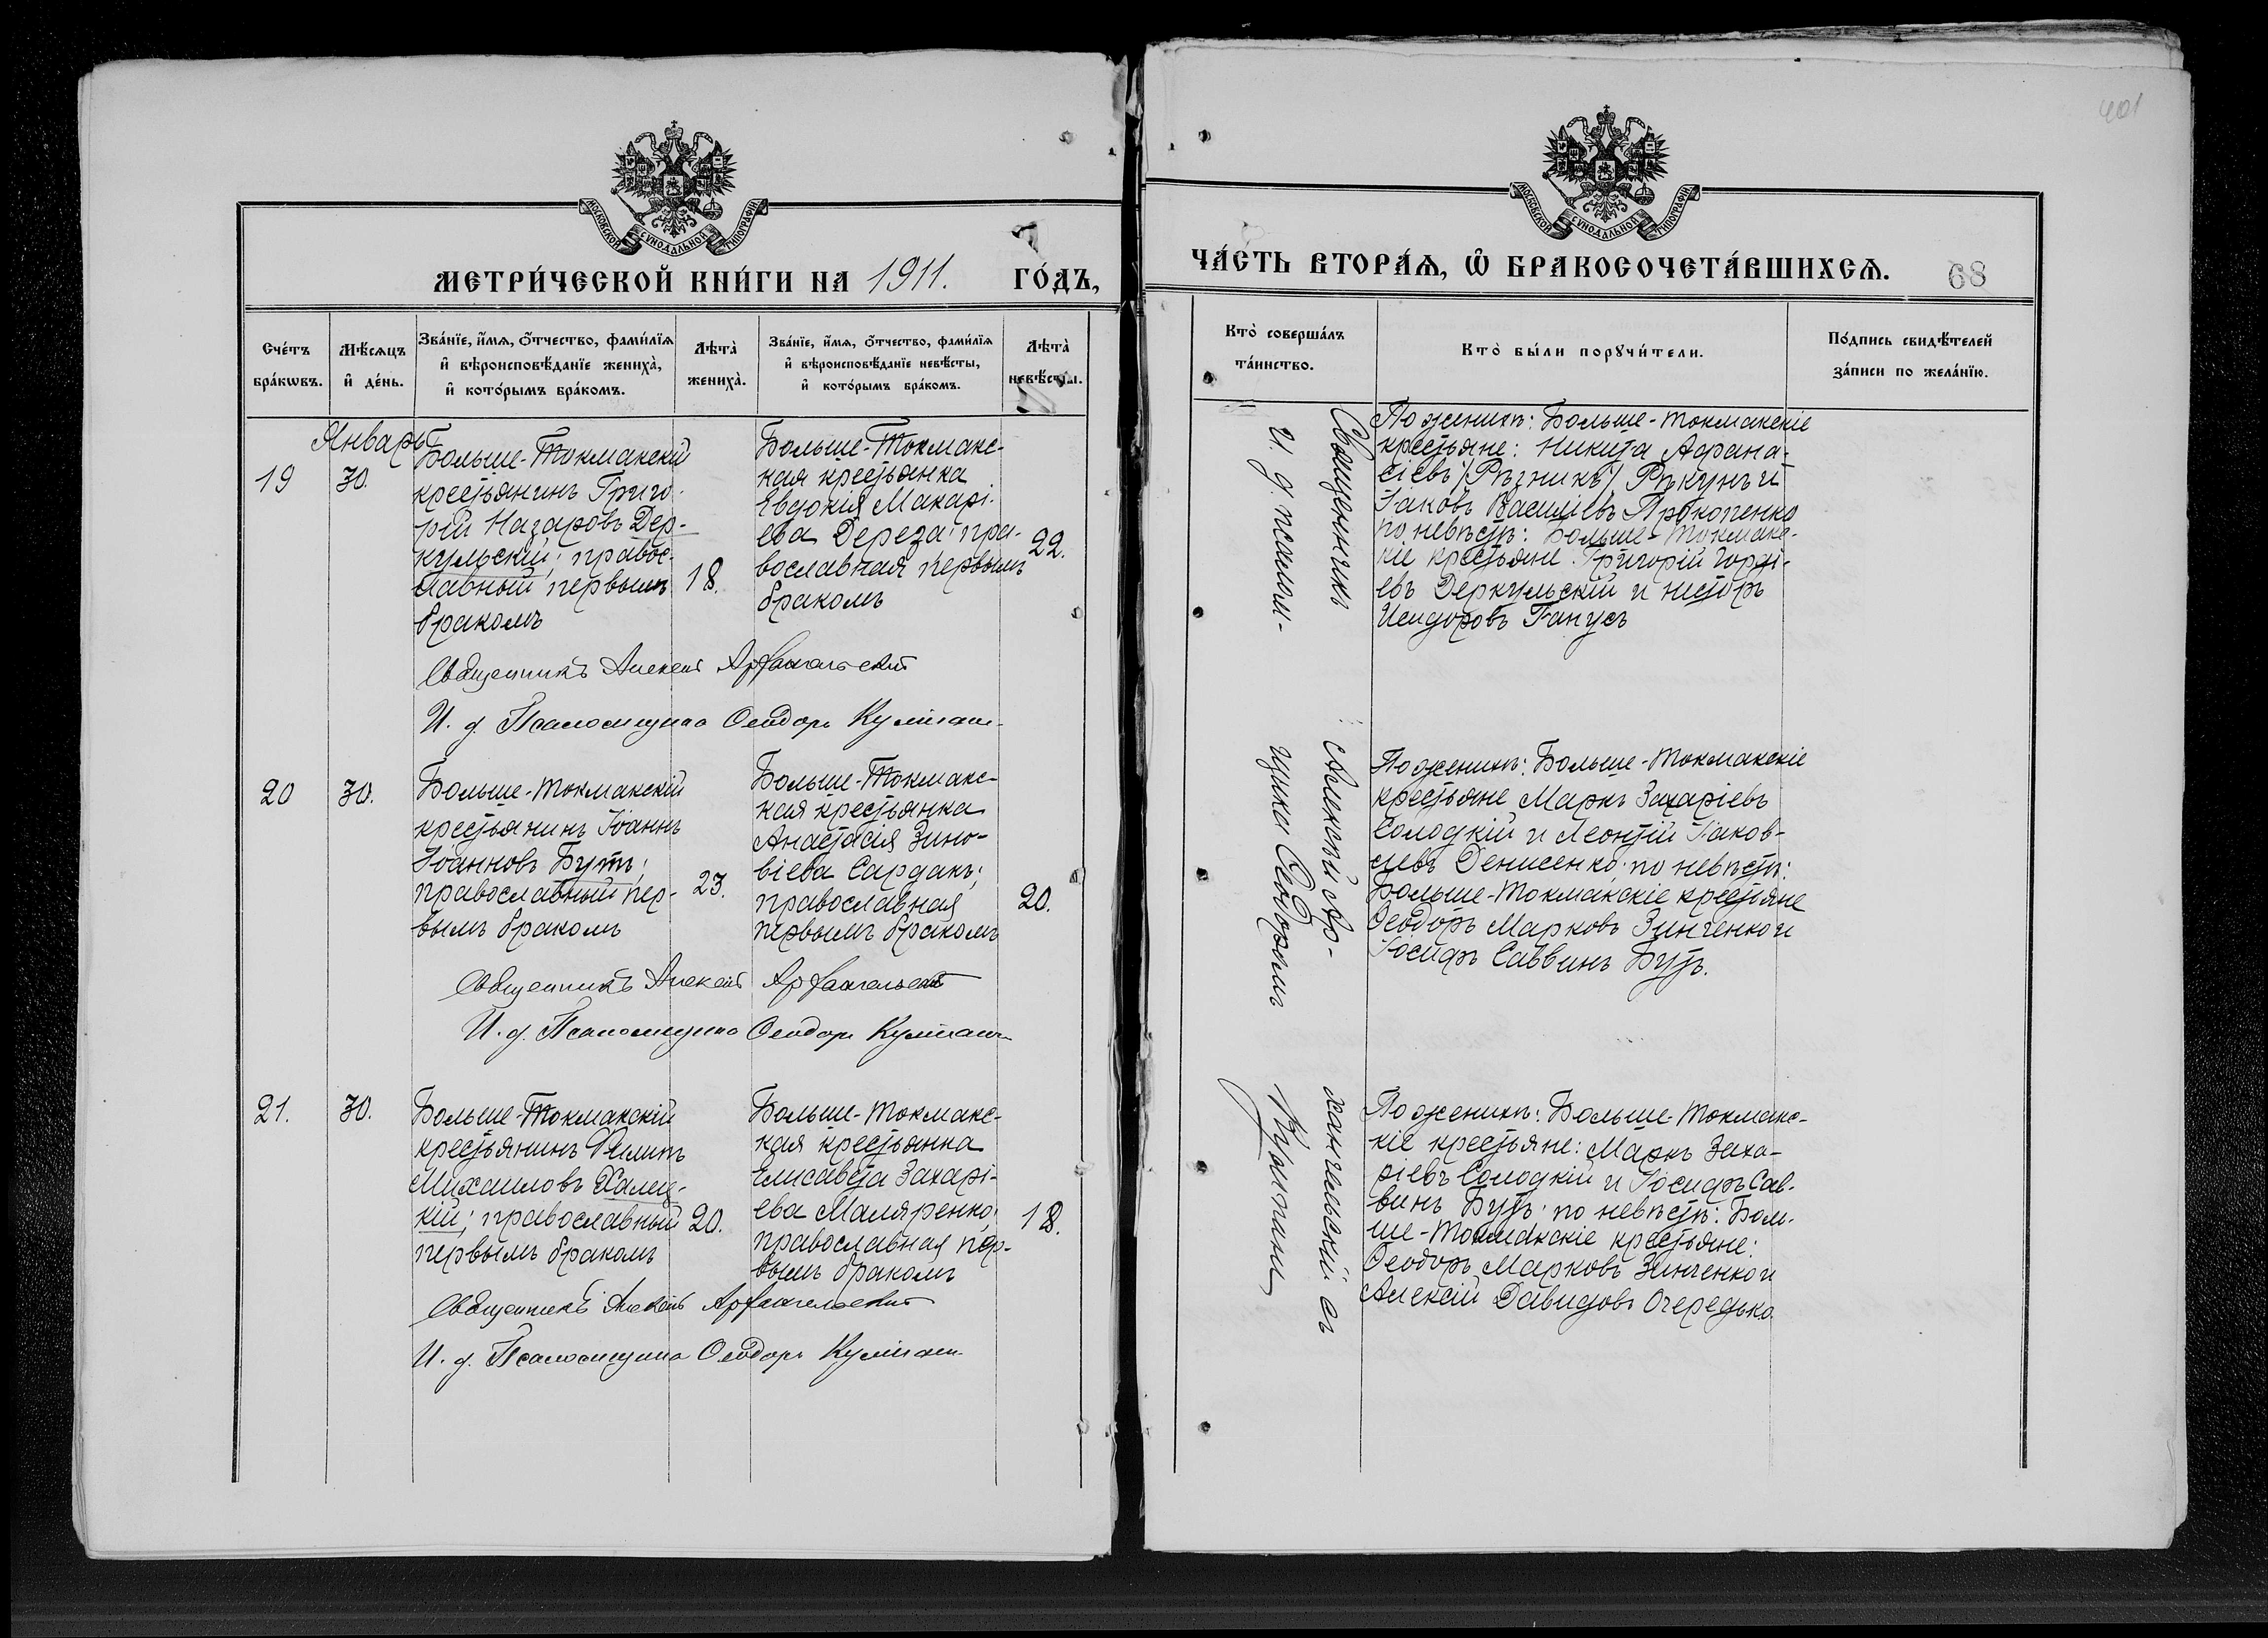 401
МОСКОВСКОЙ СѴНОДАЛЬНОЙ ТИПОГРАФІИ
МЕТРИ́ЧЕСКОЙ КНИ́ГИ НА 1911. ГО́ДЪ,
Сче́тъ бра́кѡвъ.
Мѣ́сѧцъ и҆ де́нь.
Зва́нїе, и҆́мѧ, ѻ҆́тчество, фами́лїѧ и҆ вѣроисповѣ́данїе жениха̀, и҆ кото́рымъ бра́комъ.
Лѣта̀ жениха̀.
Зва́нїе, и҆́мѧ, ѻ҆́тчество, фами́лїѧ и҆ вѣроисповѣ́данїе невѣ́сты, и҆ кото́рымъ бра́комъ.
Лѣта̀ невѣ́сты.
Январь
19
30.
Больше-Токмакскій
крестьянинъ Григо-
рій Назаровъ Дер-
кульскій; правос-
лавный первымъ
бракомъ
18.
Больше-Токмакс-
кая крестьянка
Евдокія Макарі-
ева Дереза; пра-
вославная первымъ
бракомъ
22.
Священникъ Алексій Архангельскій
И. д. Псаломщика Ѳеодоръ Кулишъ
20
30.
Больше-Токмакскій
крестьянинъ Іоаннъ
Іоанновъ Бутъ;
православный пер-
вымъ бракомъ
23.
Больше-Токмакс-
кая крестьянка
Анастасія Зино-
віева Сардакъ;
православная
первымъ бракомъ
20.
Священникъ Алексій Архангельскій
И. д. Псаломщика Ѳеодоръ
21.
30.
Больше-Токмакскій
крестьянинъ Филипъ
Михаиловъ Халец-
кій; православный
первымъ бракомъ
20.
Больше-Токмакс-
кая крестьянка
Елисавета Захарі-
ева Маляренко;
православная пер-
вымъ бракомъ
18.
Священникъ Алексій Архангельскій
И. д. Псаломщика Ѳеодоръ
МОСКОВСКОЙ СѴНОДАЛЬНОЙ ТИПОГРАФІИ
ЧА́СТЬ ВТОРА́Ѧ, Ѽ БРАКОСОЧЕТА́ВШИХСѦ.
68
Кто̀ соверша́лъ та́инство.
Кто̀ бы́ли порꙋчи́тели.
По́дпись свидѣ́телей за́писи по жела́нїю.
Священникъ Алексѣй Ар-
хангельскій съ
и. д. псалом-
щика Ѳеодоромъ
По женихѣ: Больше-Токмакскіе
крестьяне: Никита Афана-
сіевъ /Рѣзникъ/ Рѣкунъ и
Іаковъ Василіевъ Прокопенко
по невѣстѣ: Больше-Токмакс-
кіе крестьяне: Григорій Горді-
евъ Деркульскій и Несторъ
Исидоровъ Ганусъ
По женихѣ: Больше-Токмакскіе
крестьяне Маркъ Захаріевъ
Солодкій и Леонтій Іаков-
левъ Денисенко; по невѣстѣ:
Больше-Токмакскіе крестьяне
Ѳеодоръ Марковъ Зинченко и
Іосифъ Саввинъ Бутъ.
По женихѣ: Больше-Токмакс-
кіе крестьяне: Маркъ Заха-
ріевъ Солодкій и Іосифъ Сав-
винъ Бутъ; по невѣстѣ: Боль-
ше-Токмакскіе крестьяне:
Ѳеодоръ Марковъ Зинченко и
Алексій Давидовъ Очередько.